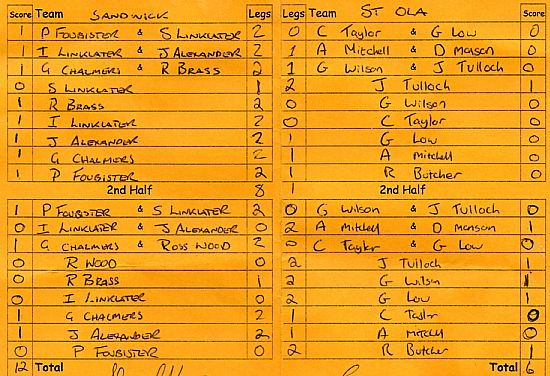 Score Team SANDWICK Legs Legs Team ST OLA Score
1 P FOUBISTER & S LINKLATER 2 0 C Taylor & G Low 0
1 I LINKLATER & J ALEXANDER 2 1 A Mitchell & D Monson 0
1 G CHALMERS & R BRASS 2 1 G Wilson & J Tulloch 0
0 S LINKLATER 1 2 J Tulloch 1
1 R BRASS 2 0 G Wilson 0
1 I LINKLATER 2 0 C Taylor 0
1 J ALEXANDER 2 1 G Low 0
1 G CHALMERS 2 1 A Mitchell 0
1 P FOUBISTER 2 1 R Butcher 0
8 2nd Half 1 2nd Half
1 P FOUBISTER & S LINKLATER 2 0 G Wilson & J Tulloch 0
0 I LINKLATER & J ALEXANDER 0 2 A Mitchell & D Monson 1
1 G CHALMERS & ROSS WOOD 2 0 C Taylor & G Low 0
0 R WOOD 0 2 J Tulloch 1
0 R BRASS 1 2 G Wilson 1
0 I LINKLATER 0 2 G Low 1
1 G CHALMERS 2 1 C Taylor 0
1 J ALEXANDER 2 1 A Mitchell 0
0 P FOUBISTER 0 2 R Butcher 1
12 Total Total 6